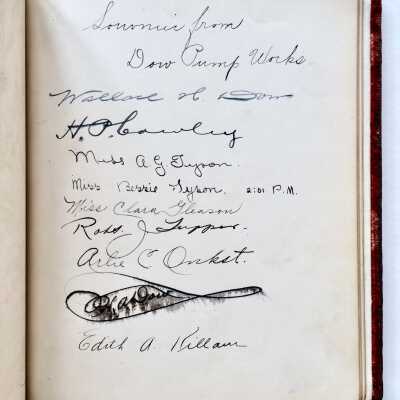 Souvenir from
Dow Pump Works
Wallace H. Dow
H. P. Cawley
Miss A G Tyson.
Miss Bessie Tyson. 2:01 P.M.
Miss Clara Gleason
Robt. J. Tupper.
Arlie C Onkst.
Dow
Edith A. Killam